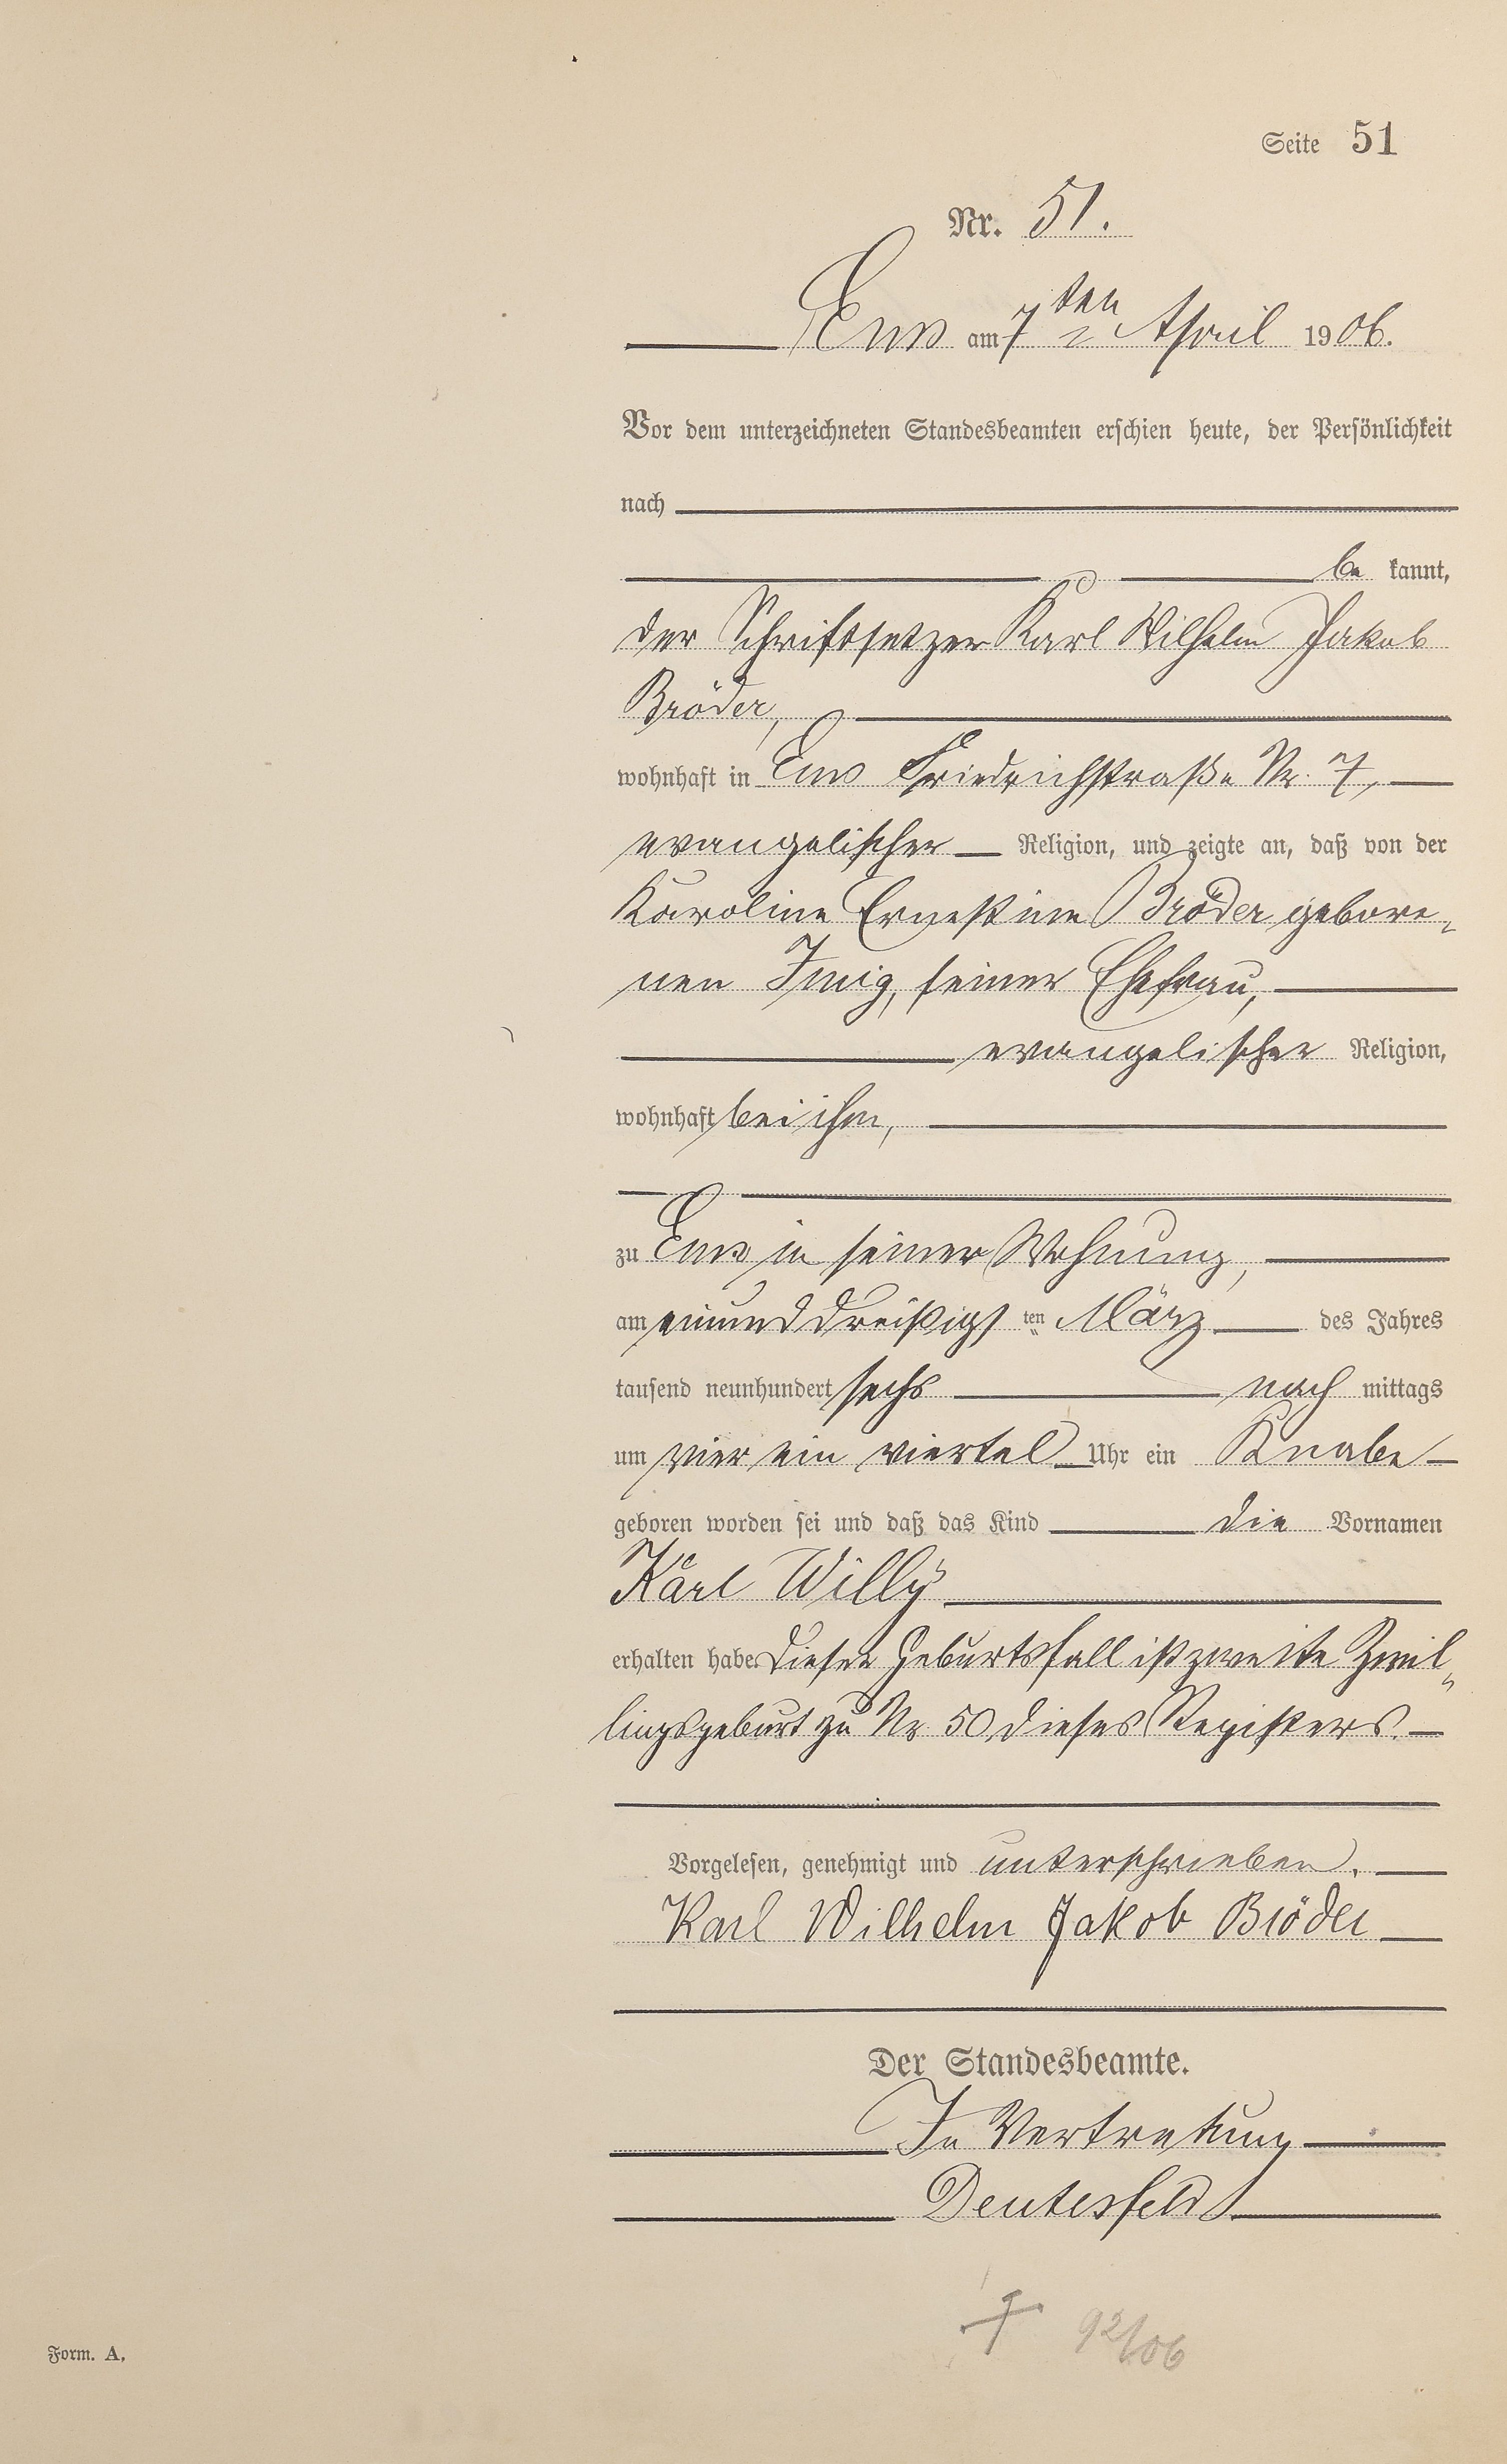 Seite 51
Nr. 51.
Ems am 7ten April 1906.
Vor dem unterzeichneten Standesbeamten erschien heute, der Persönlichkeit
nach
be kannt,
der Schriftsetzer Karl Wilhelm Jakob
Bröder,
wohnhaft in Ems Friedrichstraße Nr. 7,
evangelischer Religion, und zeigte an, daß von der
Karoline Ernestine Bröder gebore-
nen Imig, seiner Ehefrau,
evangelischer Religion,
wohnhaft bei ihm,
zu Ems in seiner Wohnung,
am einunddreißigs ten März des Jahres
tausend neunhundert sechs nach mittags
um vier ein viertel Uhr ein Knabe
geboren worden sei und daß das Kind die Vornamen
Karl Willy
erhalten habe. Dieser Geburtsfall ist zweite Zwil-
lingsgeburt zu Nr. 50 dieses Registers.
Vorgelesen, genehmigt und unterschrieben.
Karl Wilhelm Jakob Bröder
Der Standesbeamte.
In Vertretung
Deutesfeld
† 92/06
Form. A.